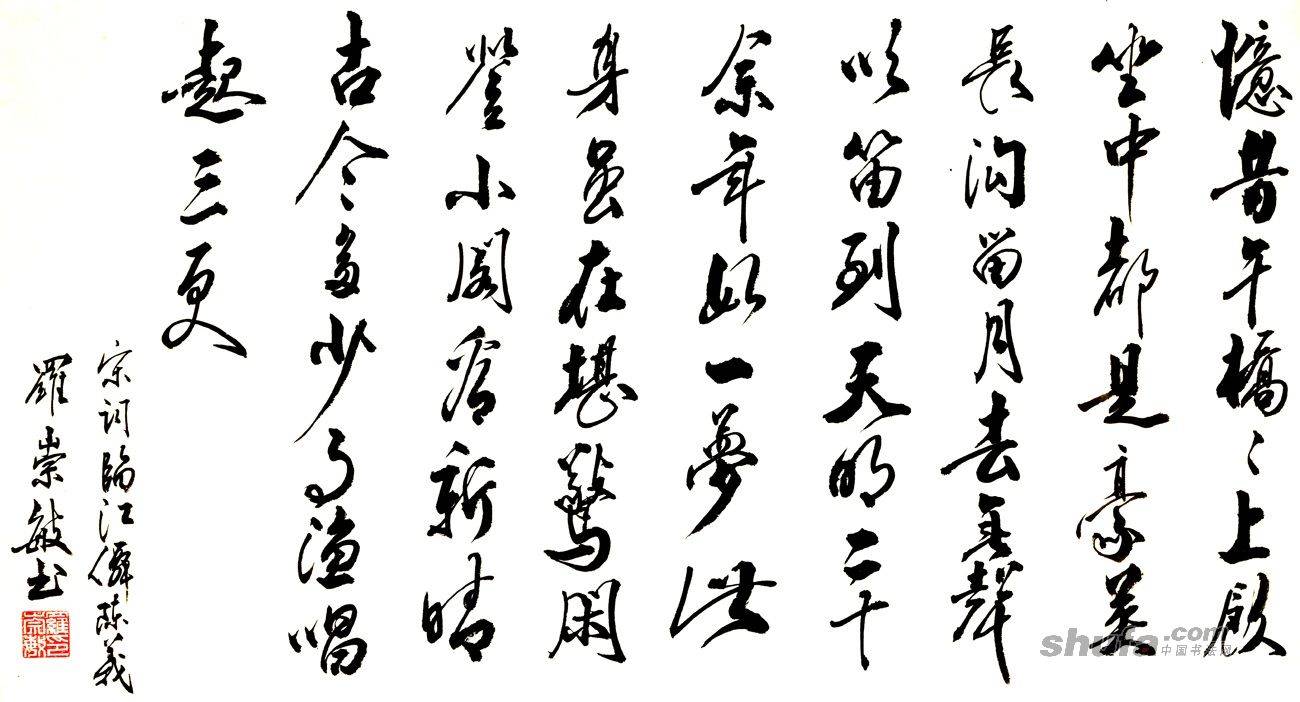 憶昔午橋〻上飲
坐中都是豪英
長沟留月去無聲
吹笛到天明二十
余年如一夢此
身虽在堪驚閑
登小閣看新晴
古今多少事漁唱
起三更
宋词臨江僊陳義
羅崇敏书
羅崇敏印
shufa.com
中国书法网